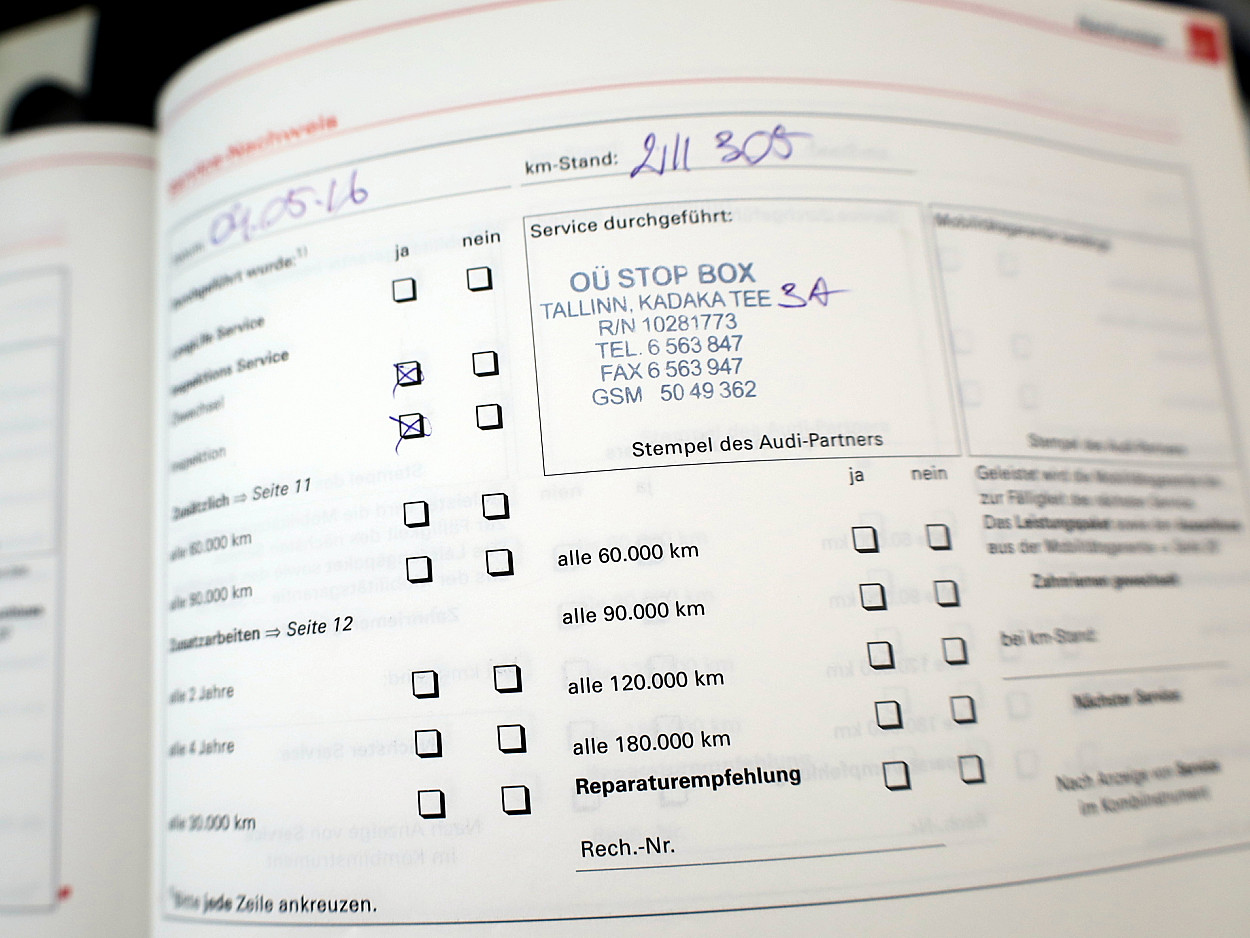 Service-Nachweis
04.05.16
km-Stand: 211 305
durchgeführt wurde:¹⁾ ja nein
LongLife Service
Inspektions Service
Ölwechsel
Inspektion
Service durchgeführt:
OÜ STOP BOX
TALLINN, KADAKA TEE 3A
R/N 10281773
TEL. 6 563 847
FAX 6 563 947
GSM 50 49 362
Stempel des Audi-Partners
Stempel des Audi-Partners
Zusätzlich ⇒ Seite 11
alle 60.000 km
alle 90.000 km
Zusatzarbeiten ⇒ Seite 12
alle 2 Jahre
alle 4 Jahre
alle 30.000 km
ja nein
alle 60.000 km
alle 90.000 km
alle 120.000 km
alle 180.000 km
Reparaturempfehlung
Rech.-Nr.
Geleistet wird die Mobilitätsgarantie bis
zur Fälligkeit des nächsten Service.
Das Leistungspaket sowie den
aus der Mobilitätsgarantie
Zahnriemen gewechselt
bei km-Stand:
Nächster Service
Nach Anzeige von Service
im Kombiinstrument
Bitte jede Zeile ankreuzen.